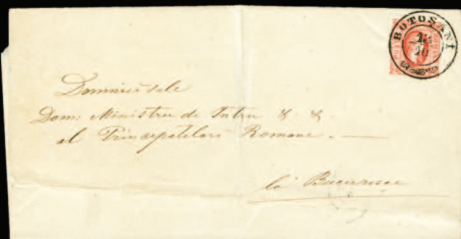 BOTOSANI
Domniei sale
Domn Ministru de Intru & &
al Prinsipatelor Romane. —
la Bucuresce